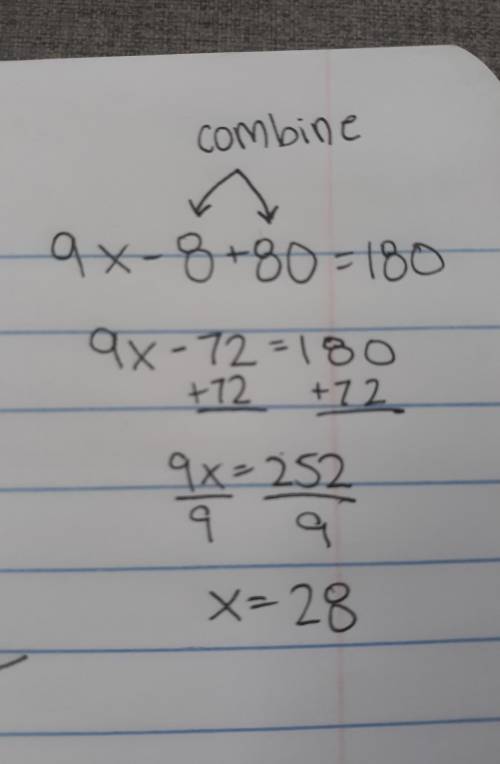 combine
9x-8+80=180
9x-72=180
+72 +72
9x=252
9 9
x=28